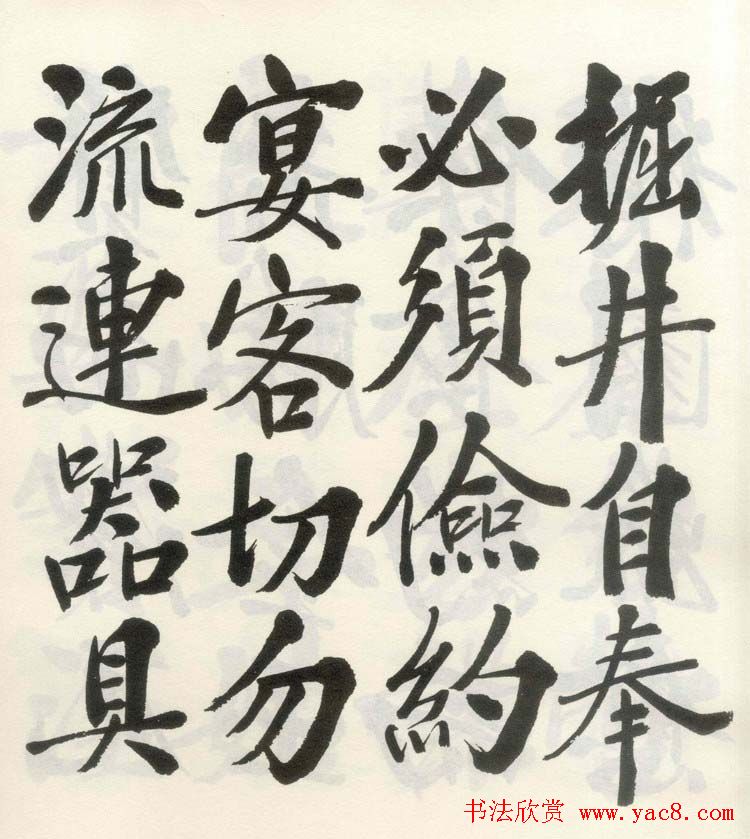 掘井自奉
必須儉約
宴客切勿
流連器具
书法欣赏 www.yac8.com